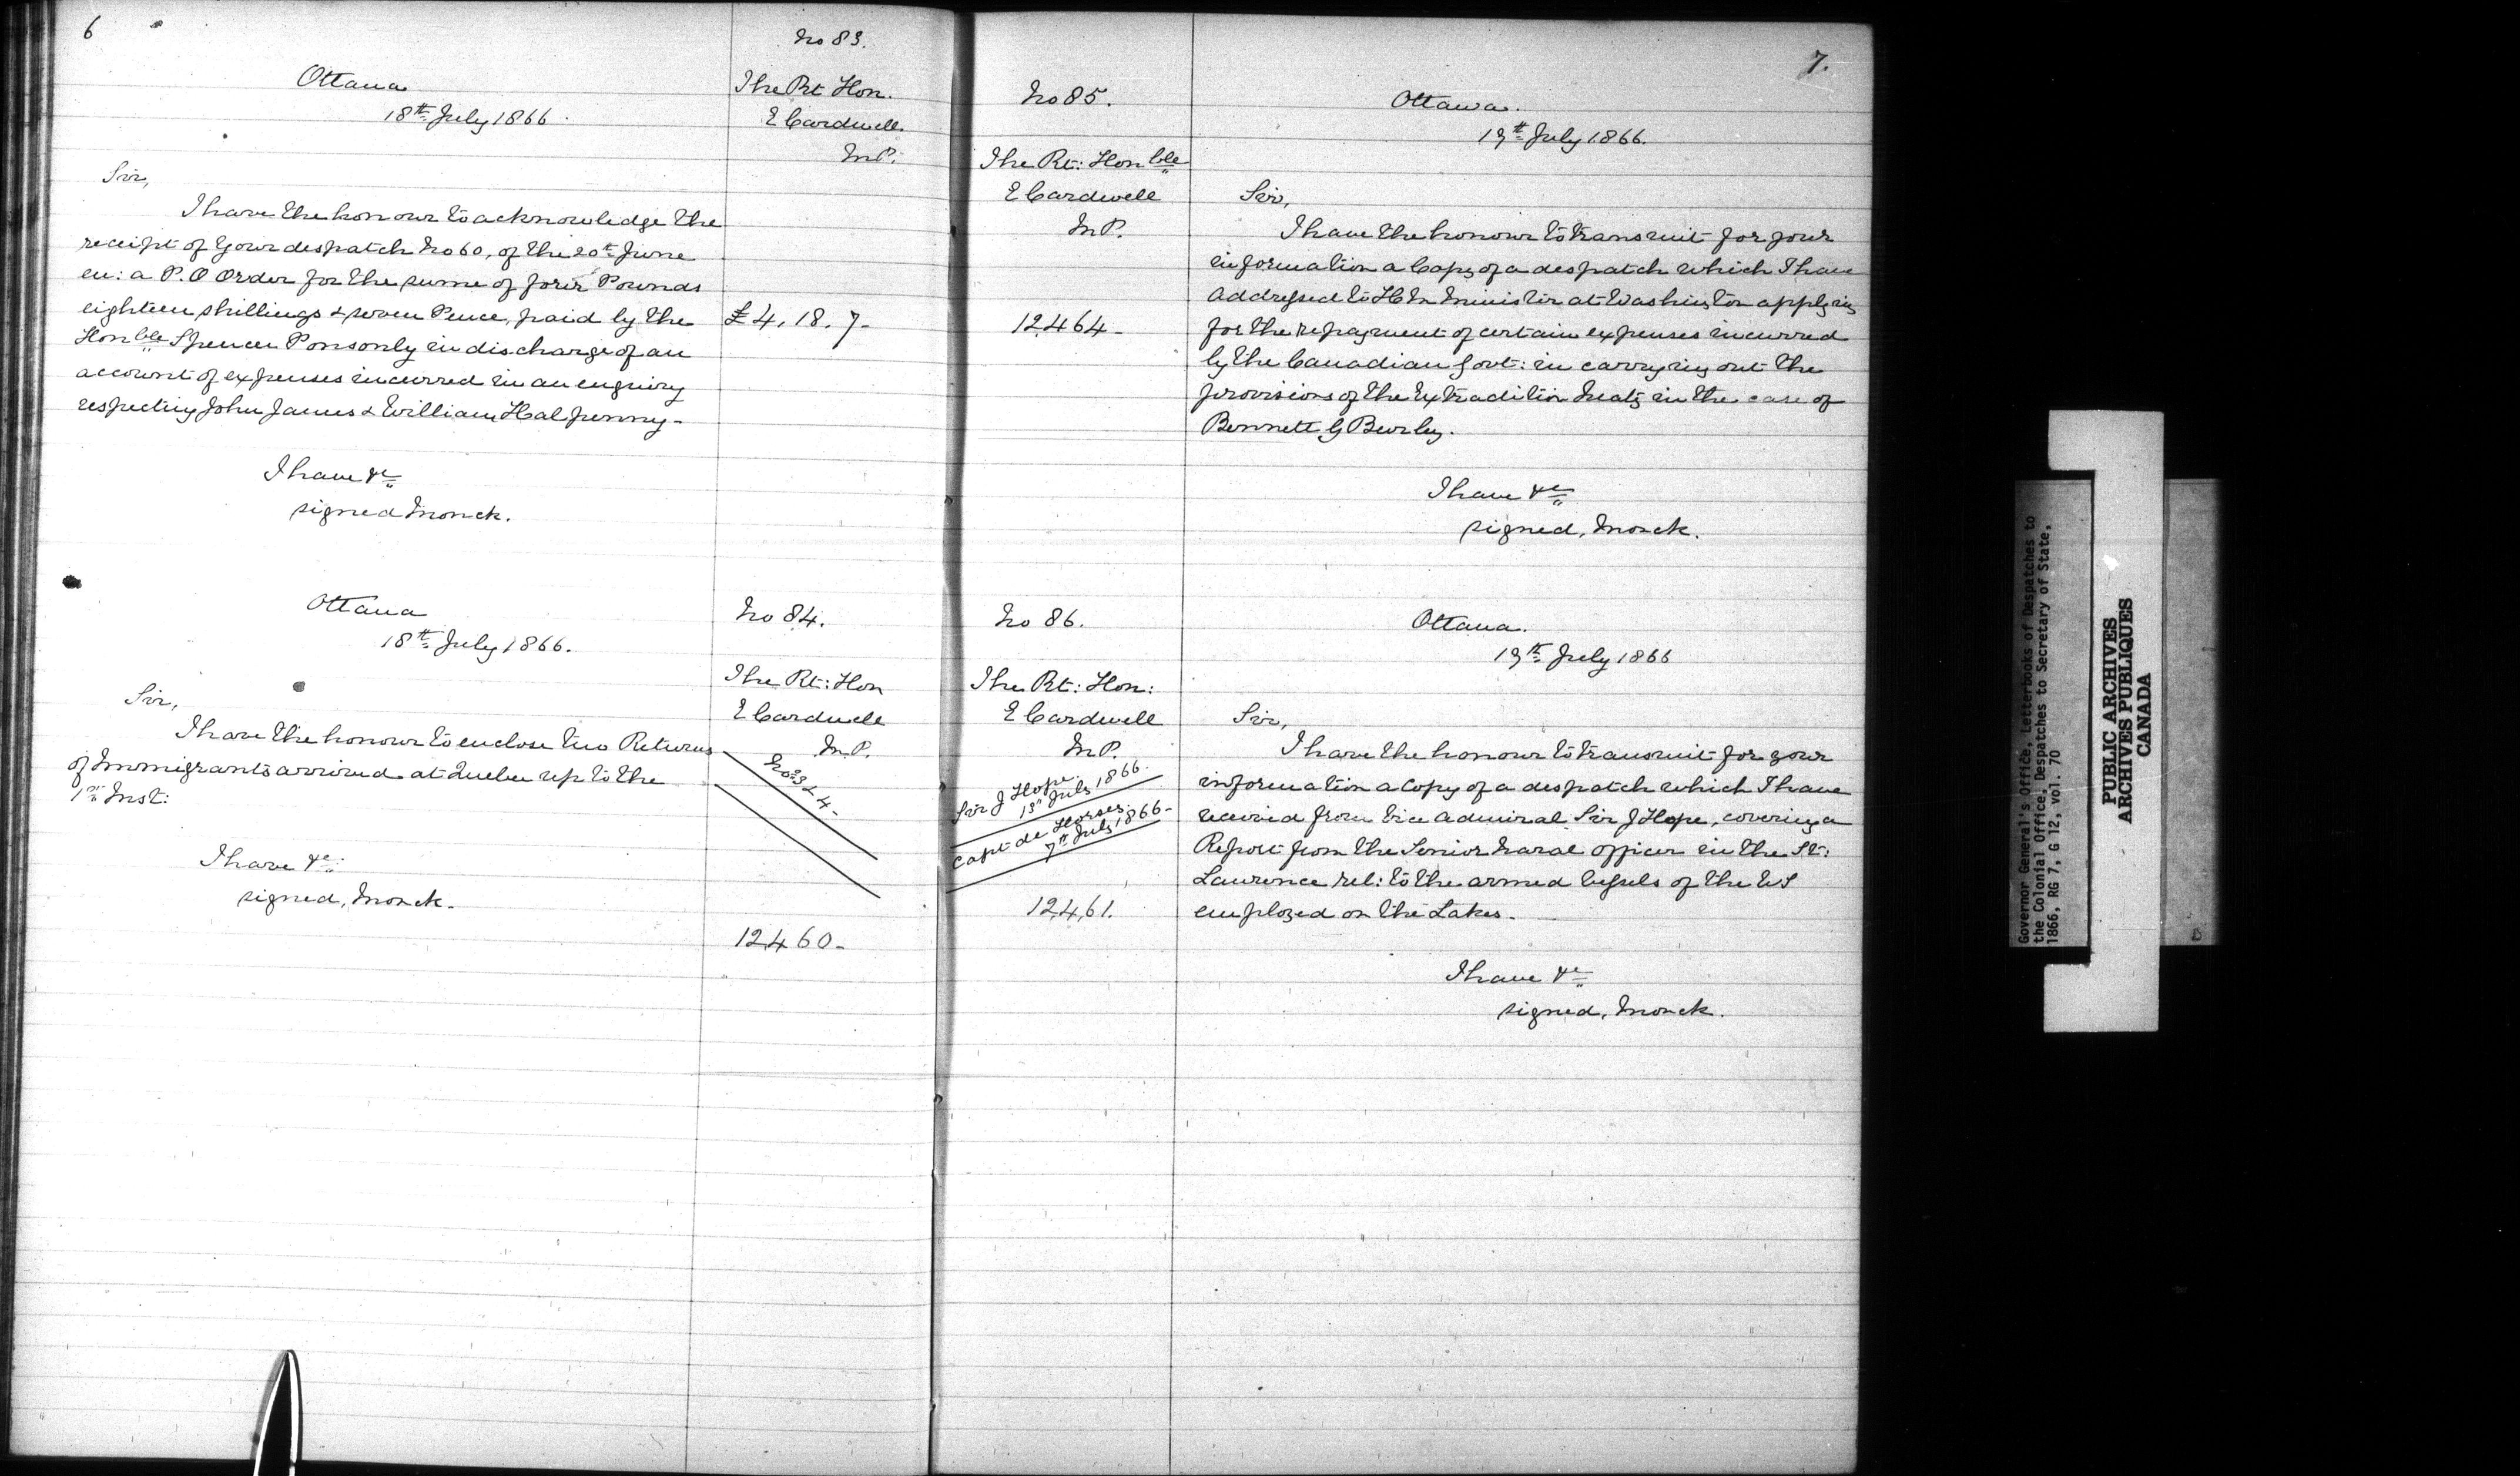 6
No 83.
Ottawa
18th July 1866.
The Rt Hon.
E Cardwell.
M.P.
Sir,
I have the honour to acknowledge the
receipt of your despatch No 60, of the 20th June
en: a P. O Order for the sume of four Pounds
eighteen shillings & seven Pence, paid by the
£4. 18. 7-
Honble Spencer Ponsonby in discharge of an
account of expenses incurred in an enquiry
respecting John James & William Halpenny-
I have &c
signed Monck.
Ottawa
18th July 1866.
No 84.
The Rt: Hon
E Cardwell
M.P.
Sir,
I have the honour to enclose two Returns
of Immigrants arrived at Quebec up to the
1st Inst:
Nos 3 & 4-
I have &c:
signed, Monck.
12460-
7.
No 85.
Ottawa.
19th July 1866.
The Rt: Honble
E Cardwell
M.P.
Sir,
I have the honour to transmit for your
information a Copy of a despatch which I have
addressed to H M Minister at Washington applying
12464-
for the repayment of certain expenses incurred
by the Canadian Govt: in carrying out the
provisions of the Extradition Treaty in the case of
Bennett G Burley.
I have &c
signed, Monck.
No 86.
Ottawa.
19th July 1866
The Rt: Hon:
E Cardwell
M.P.
Sir,
I have the honour to transmit for your
information a Copy of a despatch which I have
received from Vice Admiral Sir J Hope, covering a
Report from the Senior Naval Officer in the St:
Lawrence rel: to the armed vessels of the US
employed on the Lakes.
Sir J Hope.
13th July 1866.
Capt de Horsey.
7th July 1866-
12461.
I have &c
signed, Monck.
Governor General's Office, Letterbooks of Despatches to
the Colonial Office, Despatches to Secretary of State,
1866, RG 7, G 12, vol. 70
PUBLIC ARCHIVES
ARCHIVES PUBLIQUES
CANADA